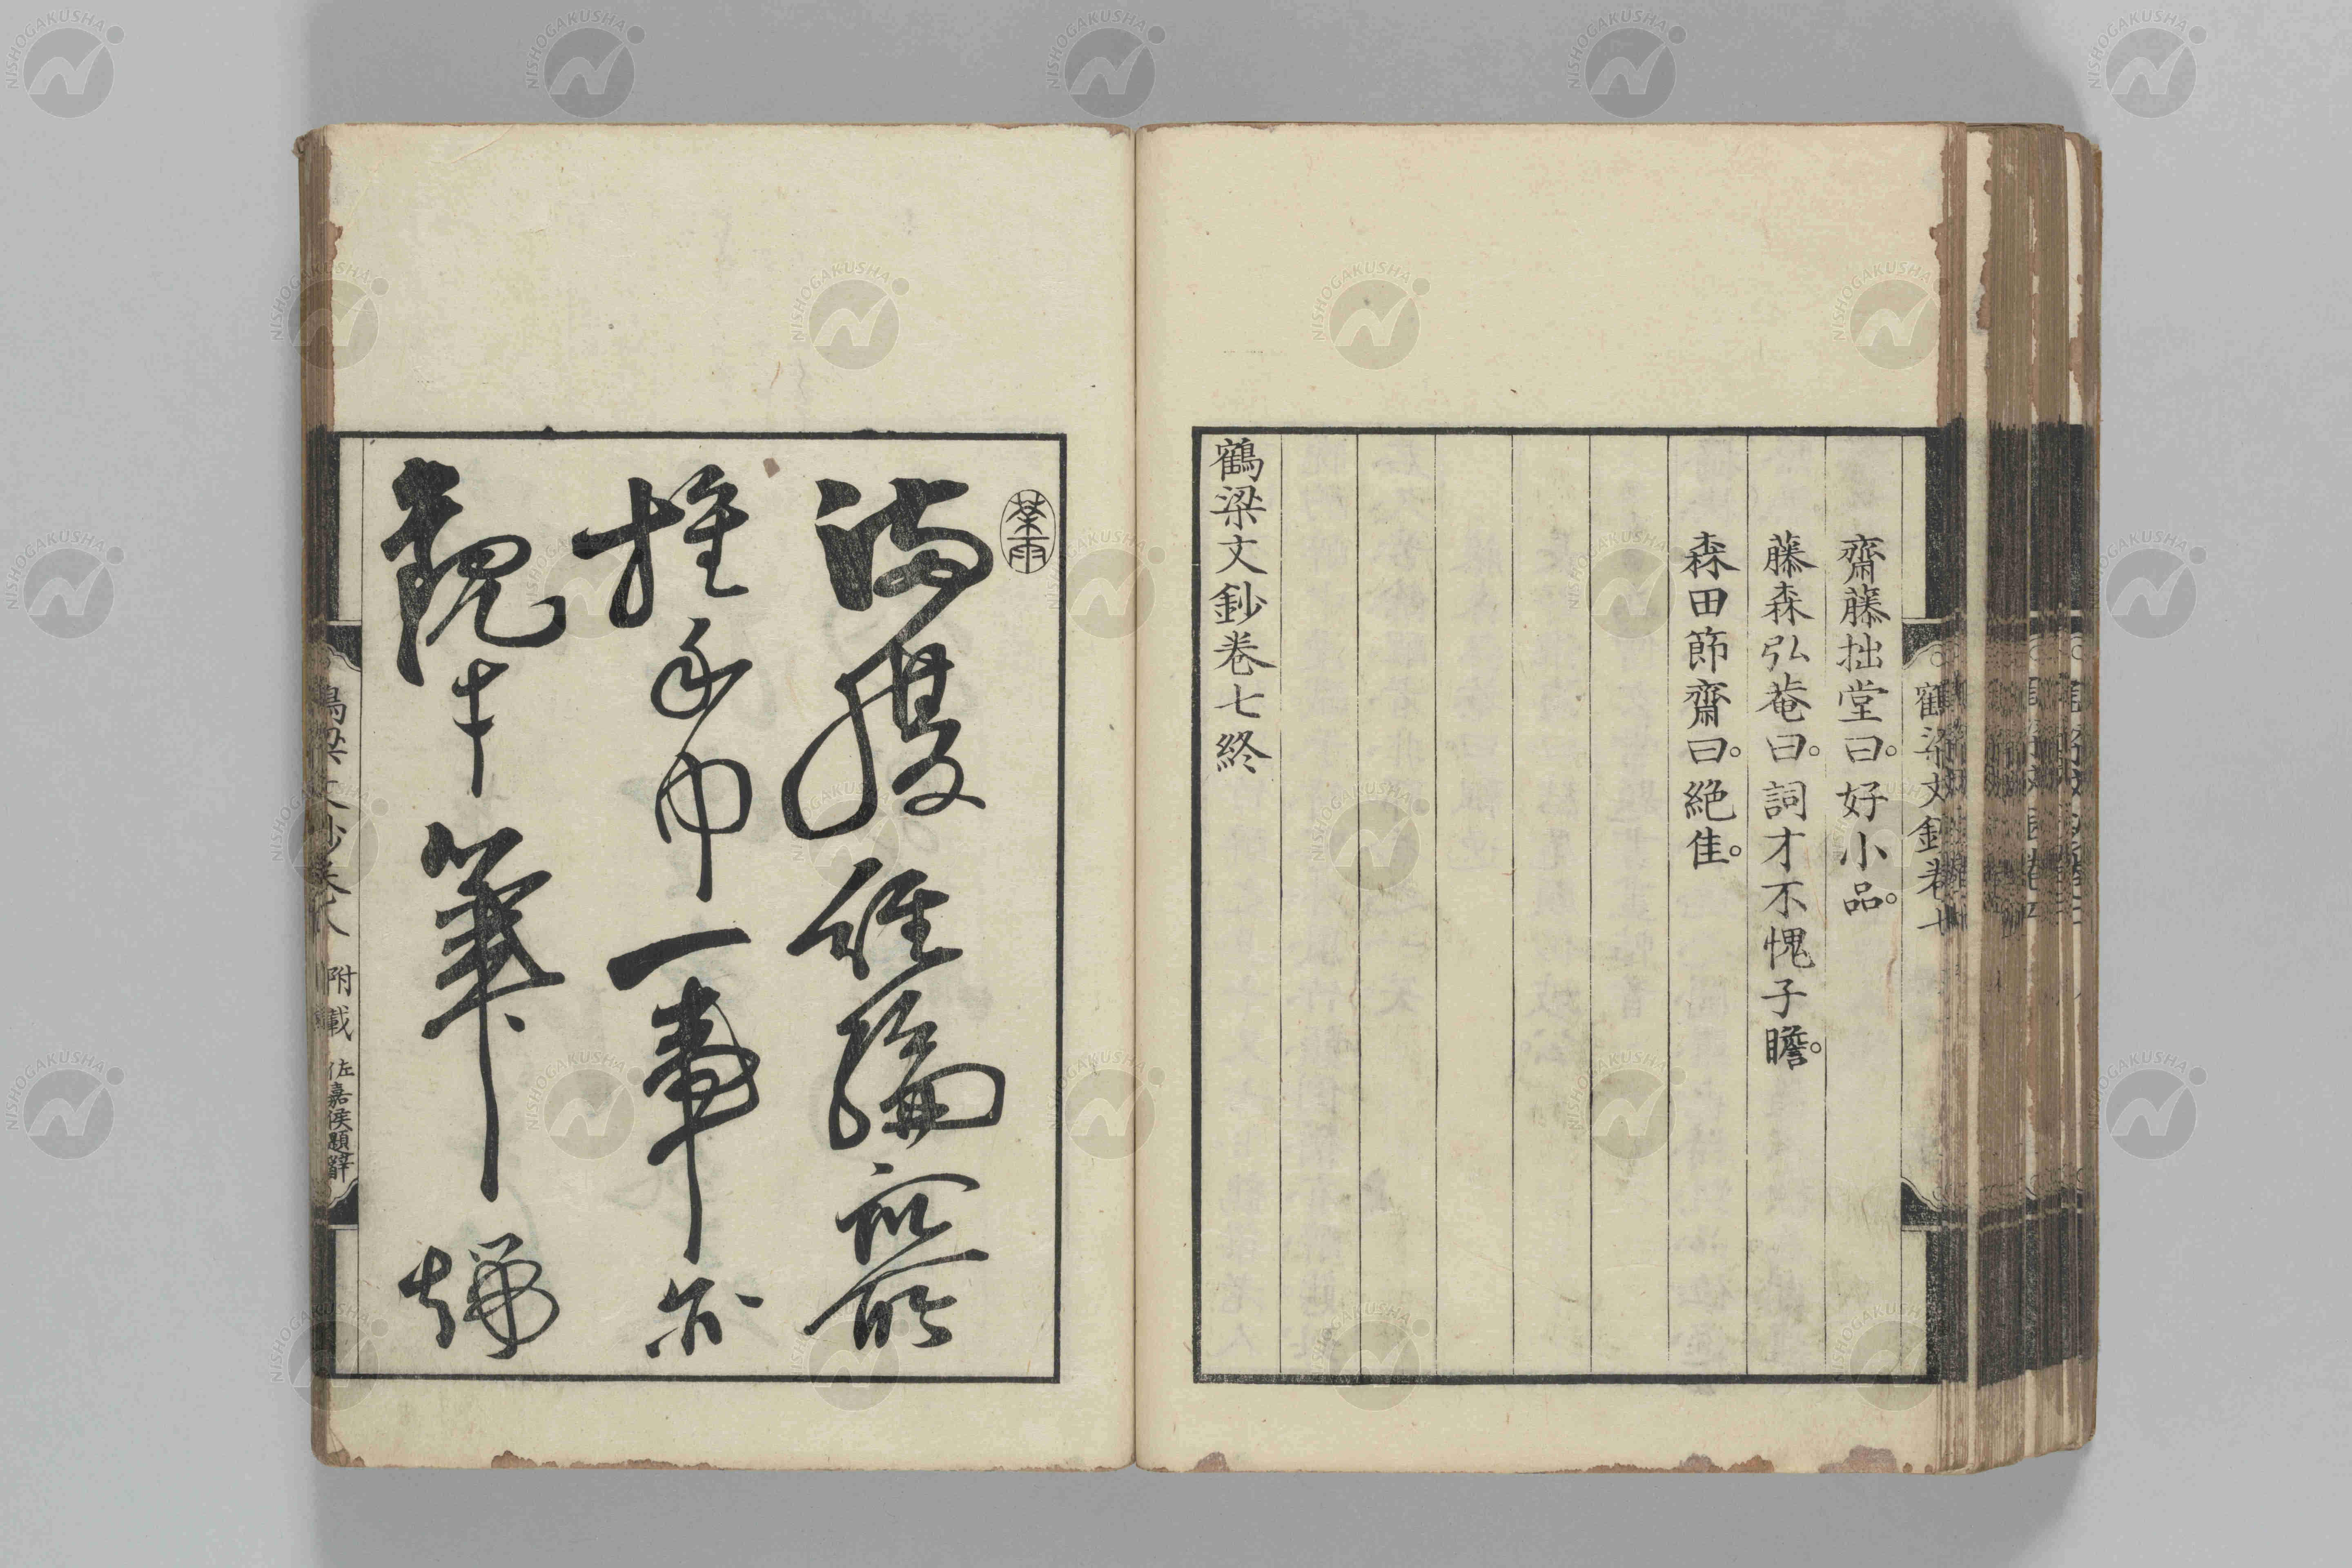 鶴梁文鈔卷七
齋藤拙堂曰。好小品。
藤森弘菴曰。詞才不愧子瞻。
森田節齋曰。絶佳。
鶴梁文鈔卷七終
滿腹經綸所
推一事
筆
鶴梁文鈔卷八 附載 佐嘉侯題辭
NISHOGAKUSHA